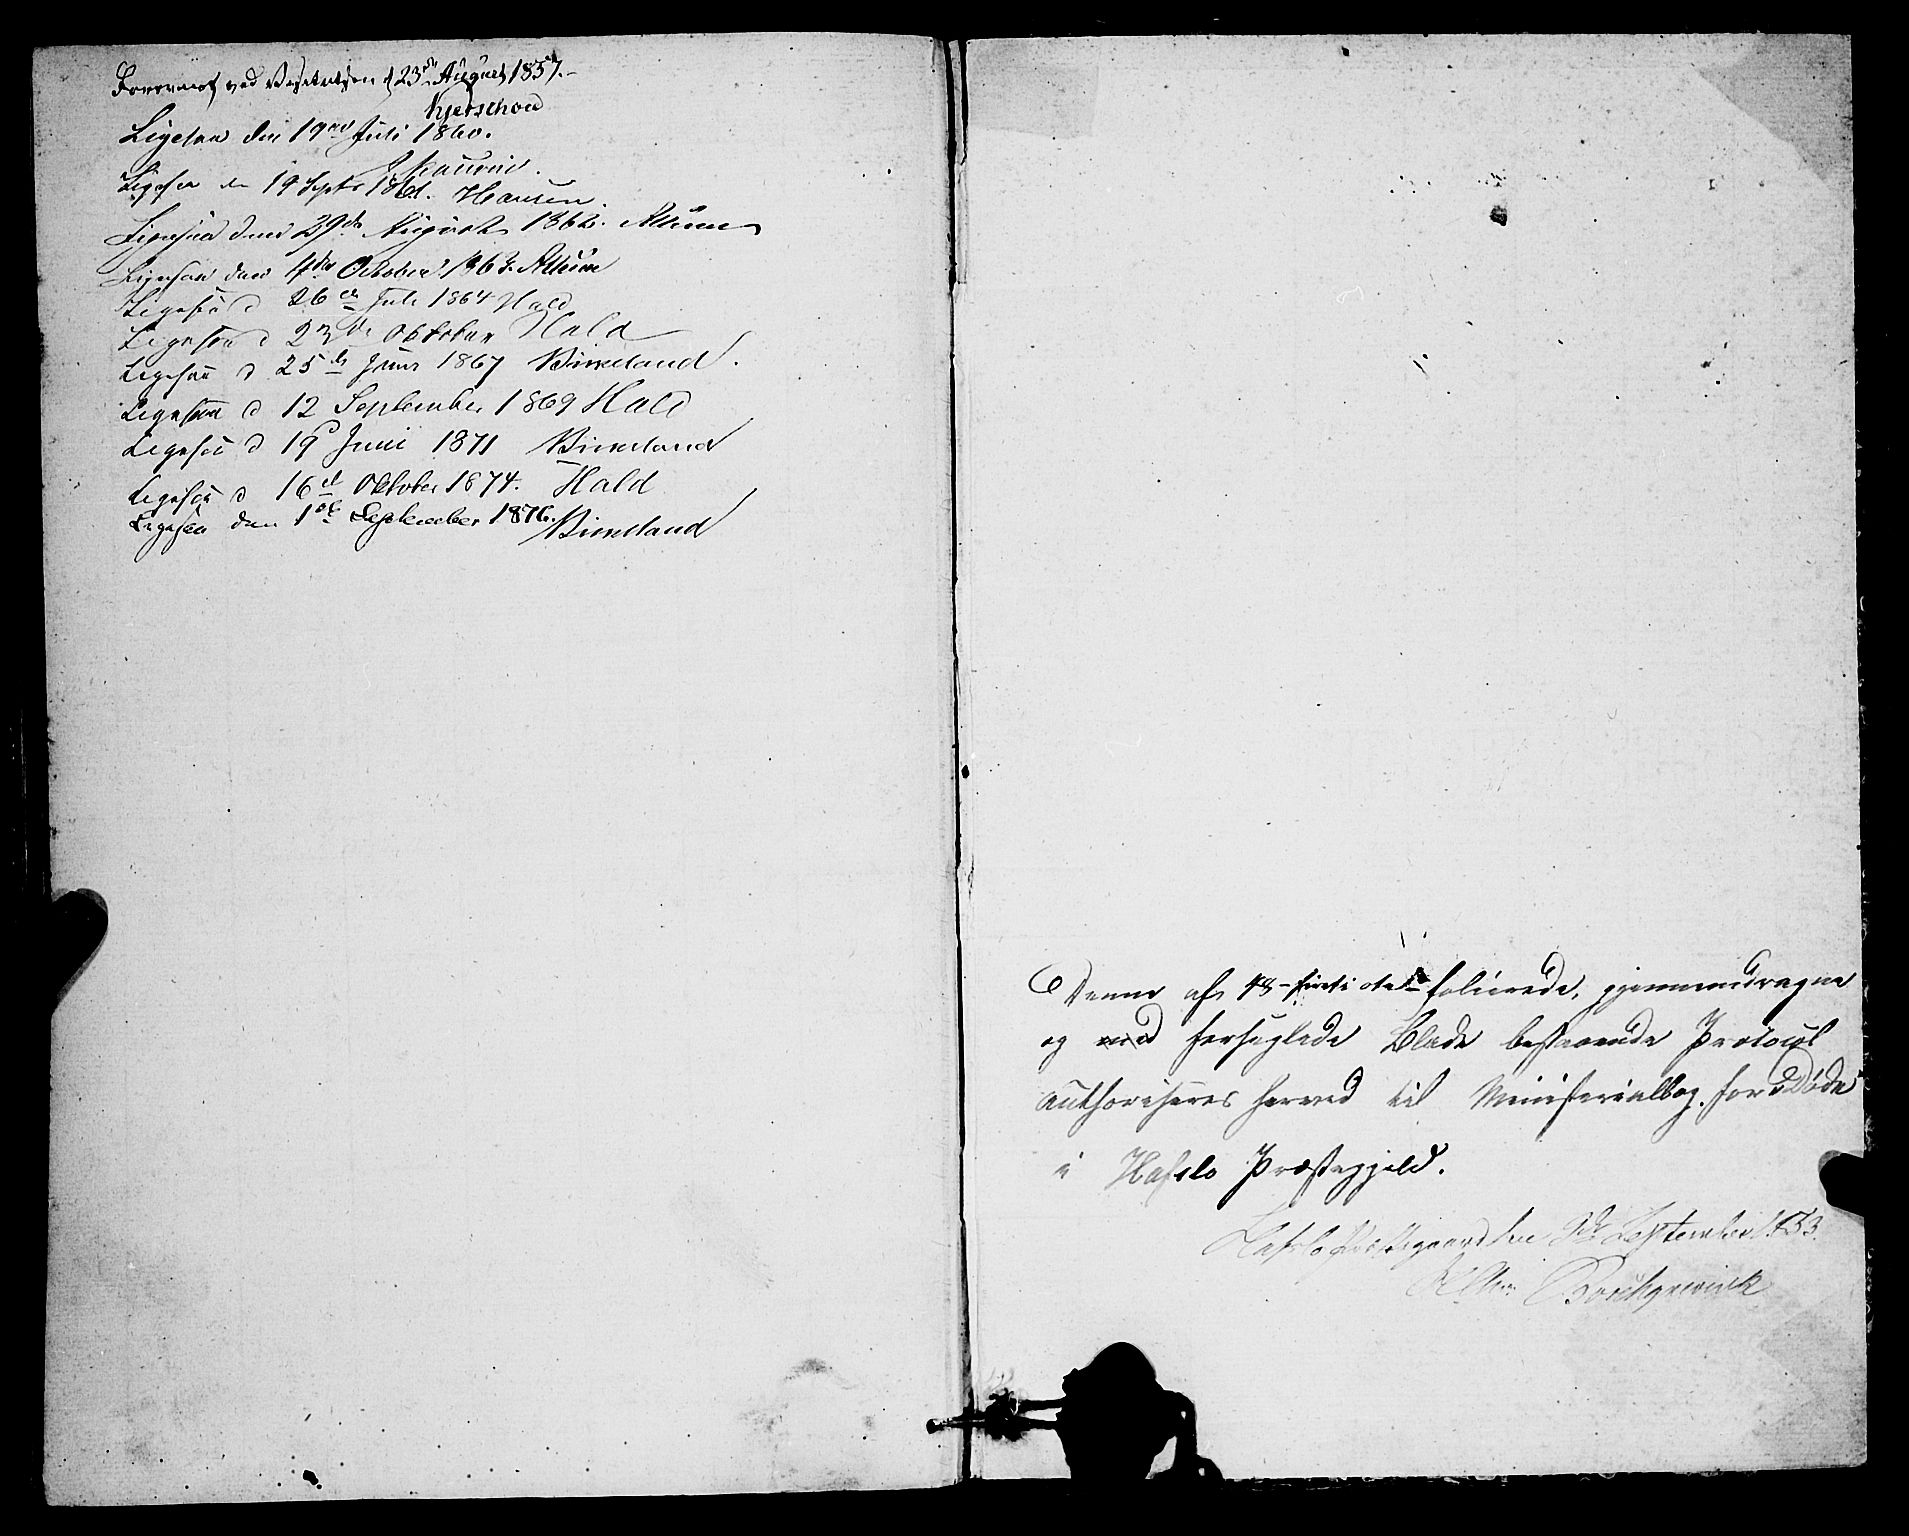 Foreviist ved Visitatsen d 23de August 1857.-
Kjerschow
Ligesaa den 19de Juli 1860.
Ligesaa den 19 Septr 1861. Hansen.
Ligesaa den 29de August 1862.
Ligesaa den 4de October 1863.
Ligesaa d 26de Juli 1864 Hald
Ligesaa d 23de Oktober Hald
Ligesaa d 25de Juni 1867 Birkeland.
Ligesaa d 12 September 1869 Hald
Ligesaa d 19 Juni 1871 Birkeland
Ligesaa d 16de Oktober 1874. Hald
Ligesaa den 1ste September 1876. Birkeland
Denne af 48 - firti otte - folierede, gjennemdragne
og med forseglede Blade bestaaende Protocol
authoriseres herved til Ministerialbog for Døde
i Hafslo Præstegjeld.
Hafslo Præstegaard den September 1853.
Borchgrevink